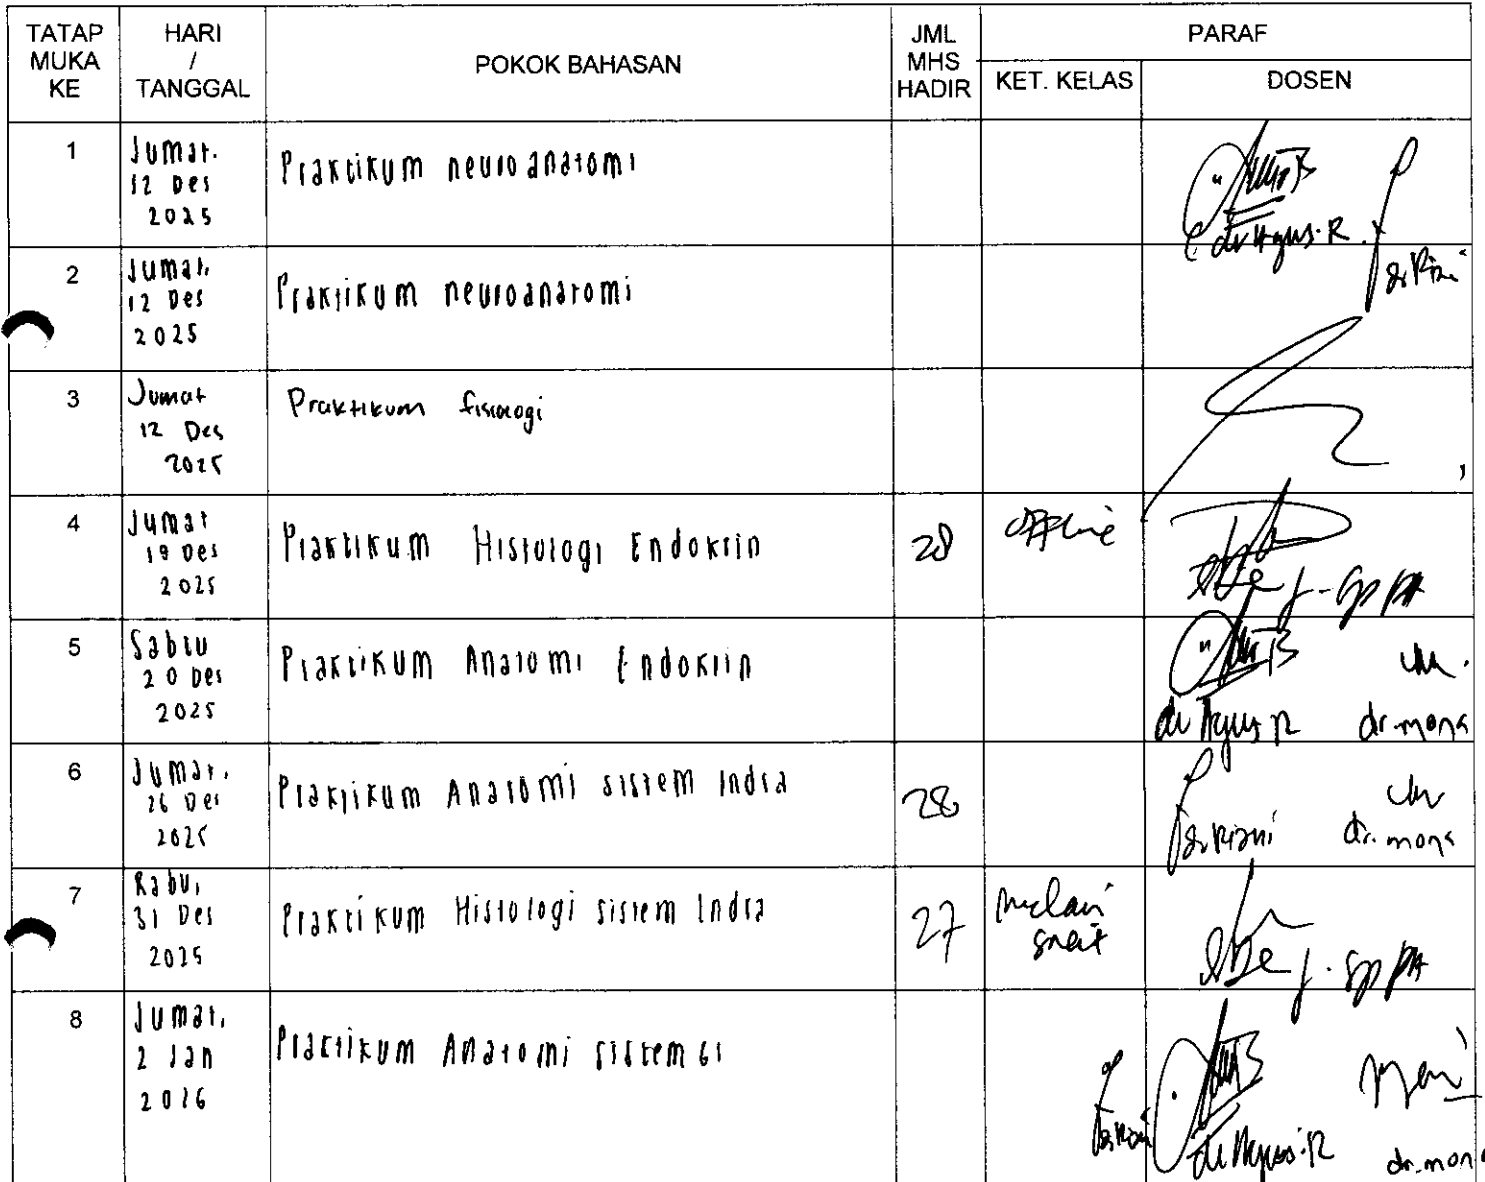 TATAP MUKA KE
HARI / TANGGAL
POKOK BAHASAN
JML MHS HADIR
PARAF
KET. KELAS
DOSEN
1
Jumat.
12 Des
2025
Praktikum neuroanatomi
dr Agus. R
dr Riani
2
Jumat,
12 Des
2025
Praktikum neuroanatomi
3
Jumat
12 Des
2025
Praktikum fisiologi
4
Jumat
19 Des
2025
Praktikum Histologi Endokrin
28
offline
SpPA
5
Sabtu
20 Des
2025
Praktikum Anatomi Endokrin
dr Agus R
dr. mona
6
Jumat,
26 Des
2025
Praktikum Anatomi sistem Indra
28
dr Riani
dr. mona
7
Rabu,
31 Des
2025
Praktikum Histologi sistem Indra
27
SpPA
8
Jumat,
2 Jan
2026
Praktikum Anatomi sistem GI
dr Riani
dr Agus. R
dr. mona